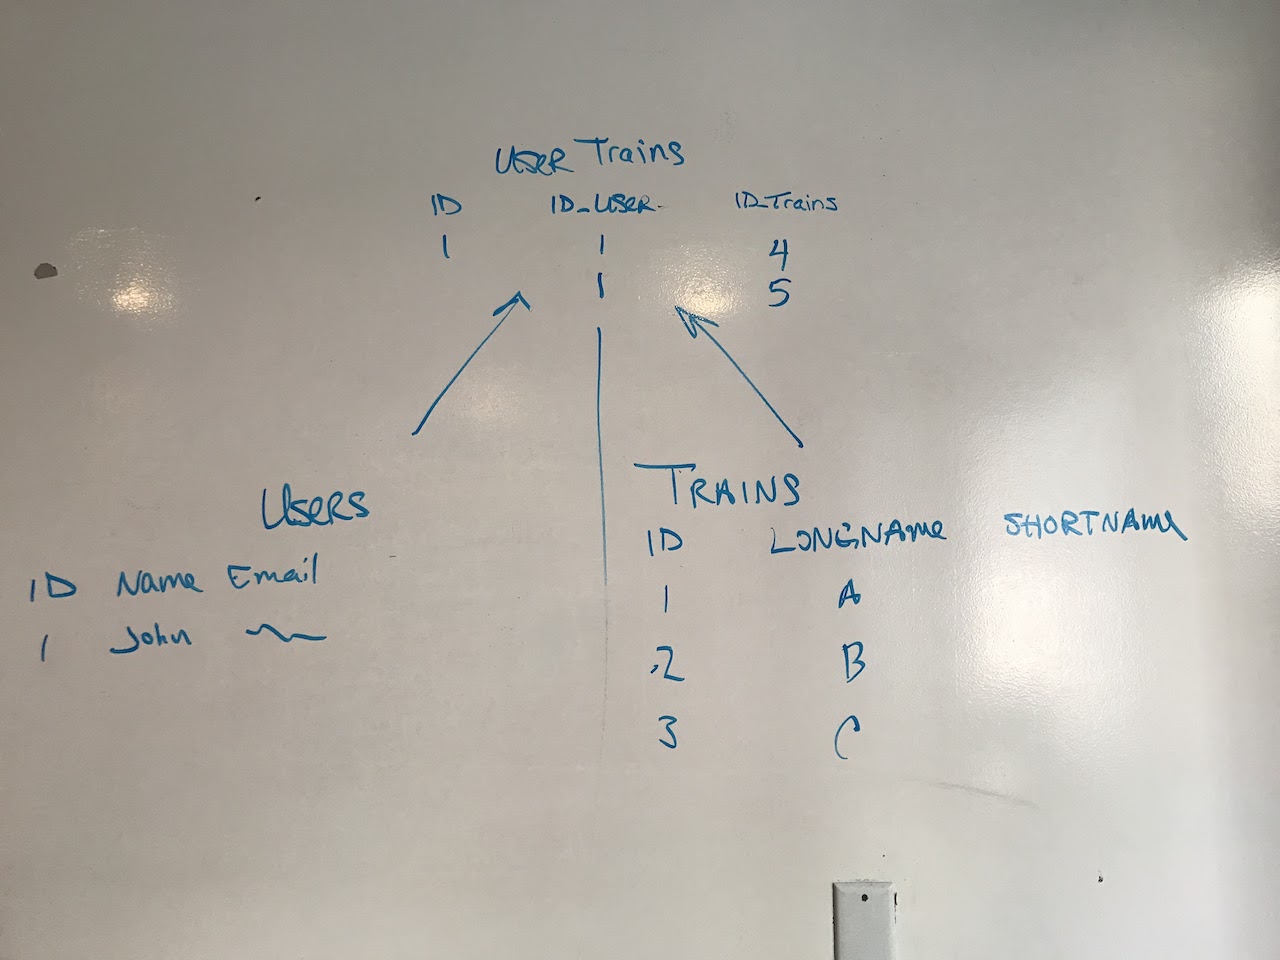 USER Trains
ID ID_USER ID_Trains
1 1 4
1 5
Users
ID Name Email
1 John
TRAINS
ID LONGNAME SHORTNAME
1 A
2 B
3 C